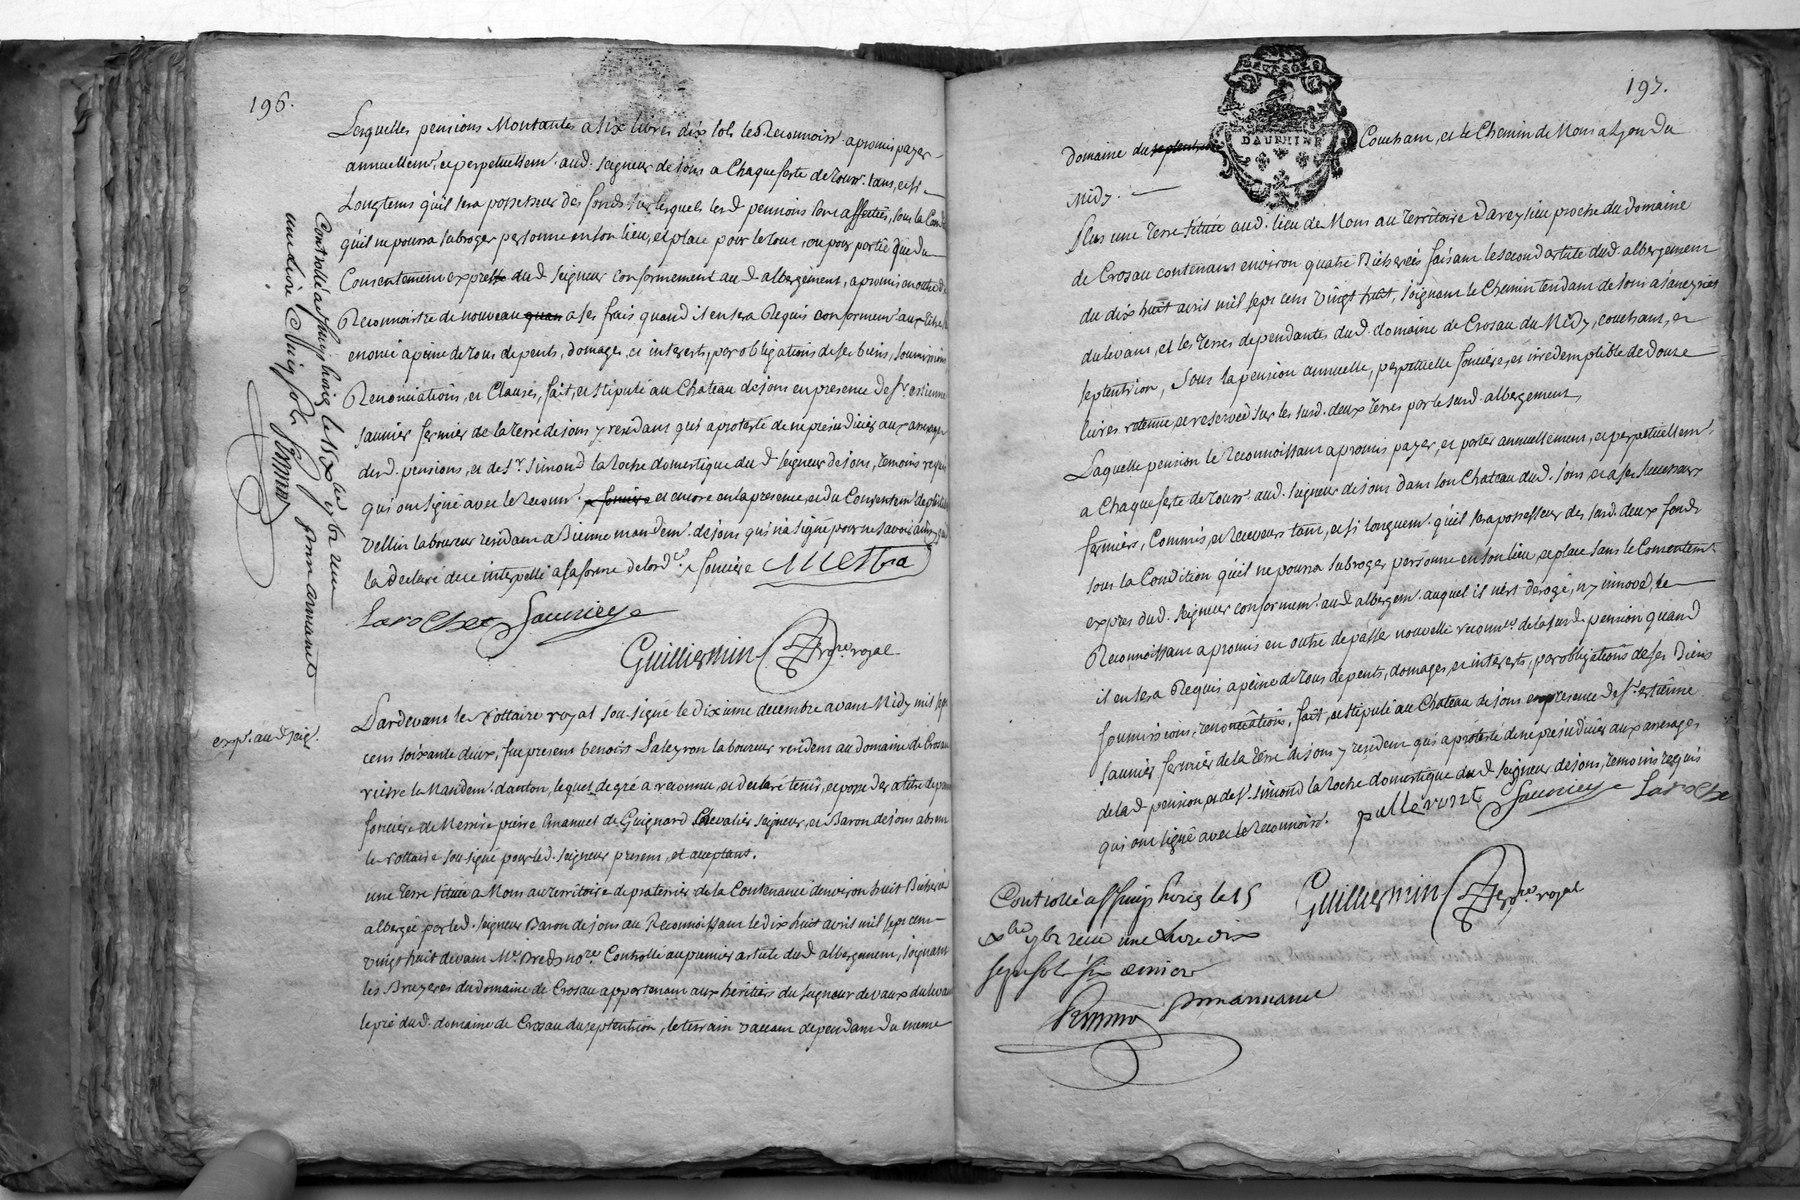 196.
Lesquelles pensions Montantes a six livres dix sols le Reconnoiss.t a promis payer
annuellem.t et perpetuellem.t aud. Seigneur de jons a Chaque feste de Touss.ts tant, et si
Longtems qu'il sera possesseur des fonds sur lesquels lesd pensions sont affectées, sous la Con
qu'il ne pourra subroger personne en son lieu, et place pour le tout, ou pour partie que du
Consentement expres du d Seigneur conformement aud albergement, a promis en outre de
Reconnoistre de nouveau quan a ses frais quand il en sera Requis conformem.t au
enoncé a peine de Tous depents, domages, et interests, par obligations de ses biens, soumissions
Renonciations, et Clauses, fait, et stipulé au Chateau de jons en presence de s.r estienne
saunier fermier de la Terre de jons y residant qui a protesté de ne prejudicier aux arrerages
desd. pensions, et de s.r Simond la Roche domestique du d Seigneur de jons, temoins requis
qui ont signé avec le reconn.t a foniere et encore en la presence et du Consentem.t de
Vellin laboureur residant a Bienne mandem.t de jons qui n'a signé pour ne savoir ainsy
la declaré de ce interpellé a la forme de lord.ce
Laroche Saunier
Guilliermin No.re royal
Controllé a heirieu le 15 x.bre
une livre Cinq sols
Pardevant le Nottaire royal sousigné le dixieme decembre avant Midy mil sept
exp.é aud seig.r
cent soixante deux, fut present benoist Paleyron laboureur resident au domaine de Crosau
riere le Mandem.t d'anton, lequel de gré a reconnu, et declaré tenir, et posseder a titre de pension
fonciere de Messire pierre Emanuel de Guignard Chevalier Seigneur, et Baron de jons absent
le Nottaire sousigné pour led. Seigneur present, et acceptant.
une Terre située a Mons au territoire de praterrier de la Contenance d'environ huit Bicherées
albergée par led. Seigneur Baron de jons au Reconnoissant le dix huit avril mil sept cent
vingt huit devant M.e Bred no.re Controllé au premier article dud albergement, joignant
les Bruyeres du domaine de Crosau appartenant aux heritiers du Seigneur de vaux du levant
le pré dud. domaine de Crosau du septentrion, le terrain vaccant dependant du meme
197.
DAUPHINE
domaine du septentrion Couchant, et le Chemin de Mons a Lyon du
Midy.
Plus une Terre située aud. lieu de Mons au Territoire d'areylieu proche du domaine
de Crosau contenant environ quatre Bicherées faisant le second article dud. albergement
du dix huit avril mil sept cent vingt huit, joignant le Chemin tendant de jons a janeyriat
du levant, et les Terres dependantes dud. domaine de Crosau du Midy, couchant, et
septentrion, Sous la pension annuelle, perpetuelle fonciere, et irredemptible de douze
livres retenue et reservée sur les susd. deux Terres par le susd. albergement
Laquelle pension le Reconnoissant a promis payer, et porter annuellement, et perpetuellem.t
a Chaque feste de Touss.ts aud. Seigneur de jons dans son Chateau dud. jons et a ses successeurs
fermiers, Commis, et Receveurs tant, et si longuem.t qu'il sera possesseur des susd. deux fonds
sous la Condition qu'il ne pourra subroger personne en son lieu, et place sans le Consentem.t
expres dud. Seigneur conformem.t aud. albergem.t auquel il n'est derogé, n'y innové, le
Reconnoissant a promis en outre de passer nouvelle reconn.ce de la susd. pension quand
il en sera Requis a peine de Tous depents, domages, et interests, par obligations de ses Biens
soumissions, renonciations, fait, et stipulé au Chateau de jons en presence de s.r estienne
saunier fermier de la Terre de jons y resident qui a protesté de ne prejudicier aux arrerages
de lad. pension et de s.r simond la Roche domestique dud Seigneur de jons, temoins requis
qui ont signé avec le reconnoiss.t
Saunier Laroche
Guilliermin No.re royal
Controllé a heirieu le 15
x.bre 1762 recu une Livre dix
sept sols six deniers